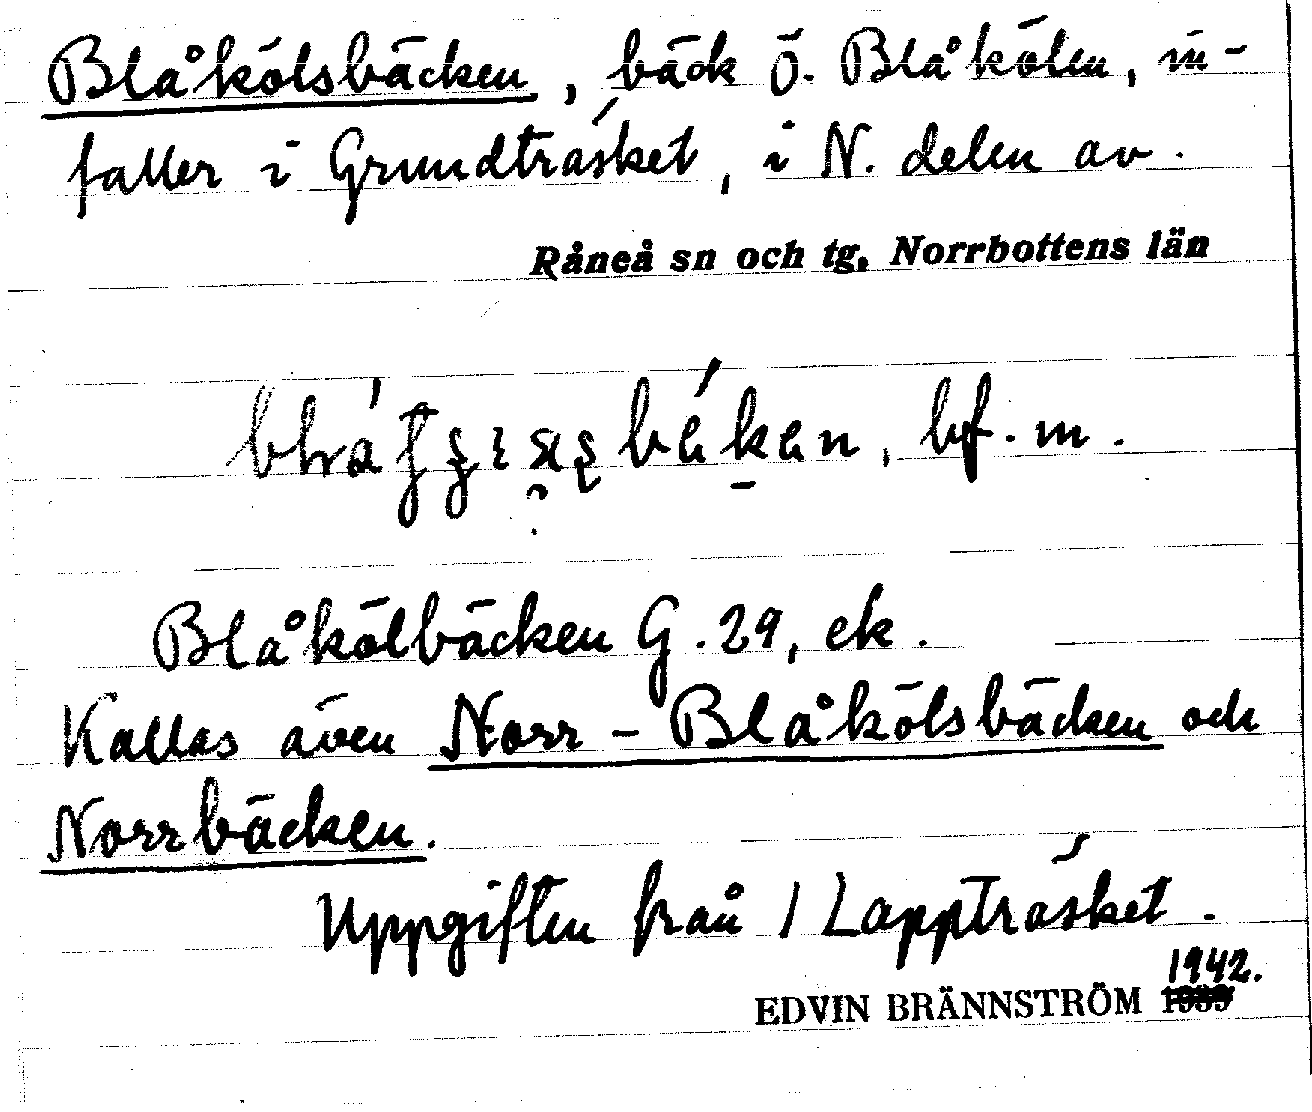 Blåkölsbäcken, bäck ö. Blåkölen, in-
faller i Grundträsket, i N. delen av.
Råneå sn och tg, Norrbottens län
bf. m.
Blåkölbäcken G. 29, ek.
Kallas även Norr-Blåkölsbäcken och
Norrbäcken.
Uppgiften från 1 Lappträsket.
1942.
EDVIN BRÄNNSTRÖM 1939